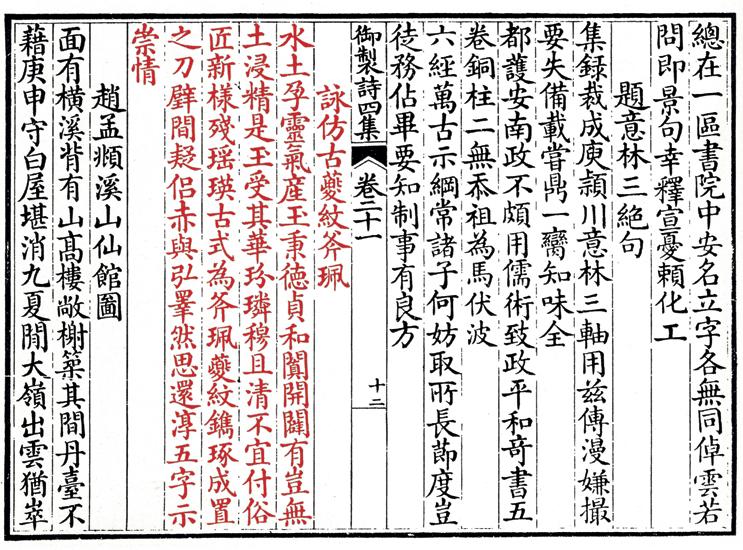 總在一區書院中安名立字各無同倬雲若
問即景句幸釋宣憂賴化工
題意林三絶句
集録裁成庾潁川意林三軸用兹傳漫嫌撮
要失備載嘗鼎一臠知味全
都護安南政不頗用儒術致政平和奇書五
卷銅柱二無忝祖為馬伏波
六經萬古示綱常諸子何妨取所長節度豈
徒務佔畢要知制事有良方
御製詩四集
卷二十一
十二
詠仿古夔紋斧珮
水土孕靈氣産玉秉德貞和闐開闢有豈無
土浸精是玉受其華玢璘穆且清不宜付俗
匠新様殘瑶瑛古式為斧珮夔紋鐫琢成置
之刀㻺間疑侣赤與弘睪然思還淳五字示
崇情
趙孟頫溪山仙館圖
面有横溪背有山高樓敞榭築其間丹臺不
藉庚申守白屋堪消九夏閒大嶺出雲猶崒